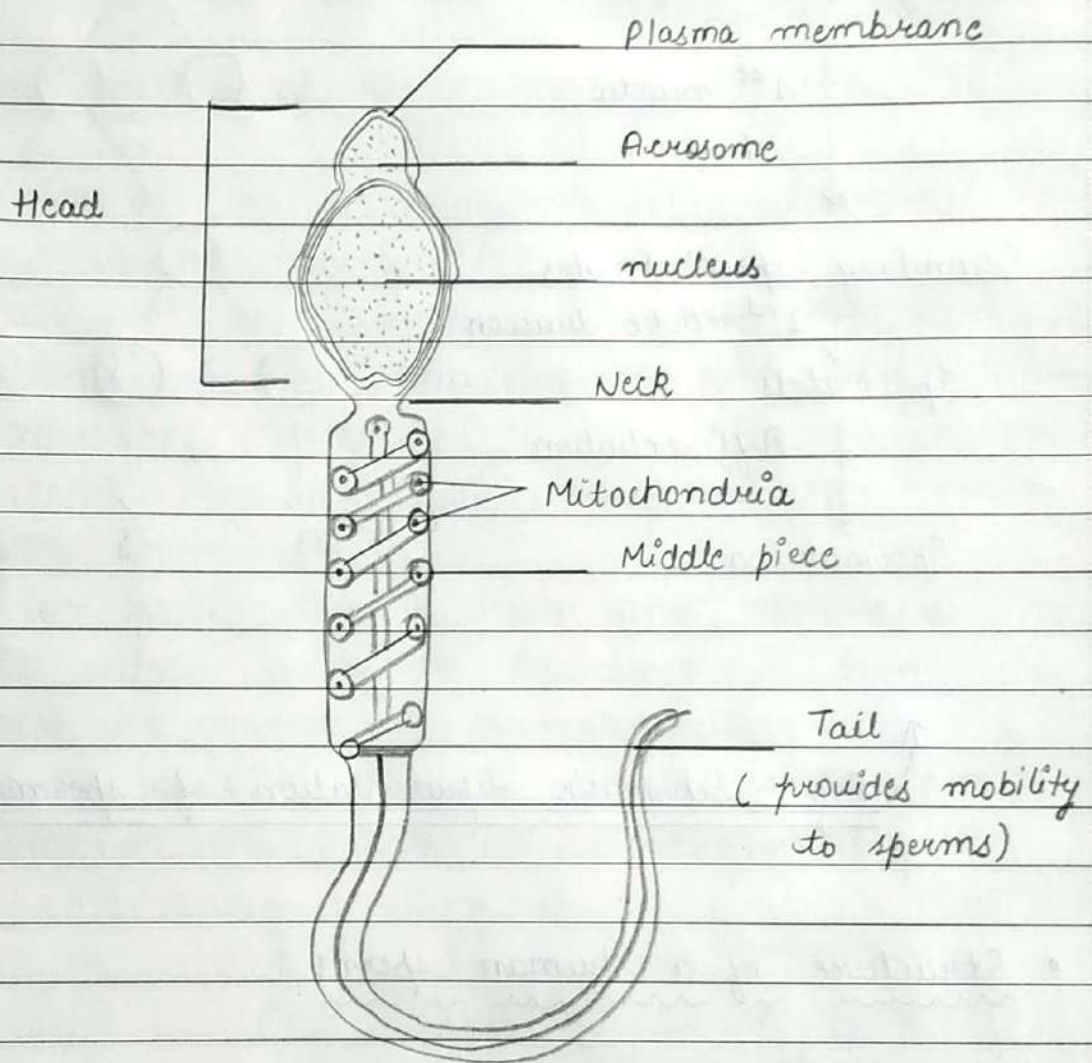 Plasma membrane
Acrosome
Head
nucleus
Neck
Mitochondria
Middle piece
Tail
( provides mobility
to sperms)